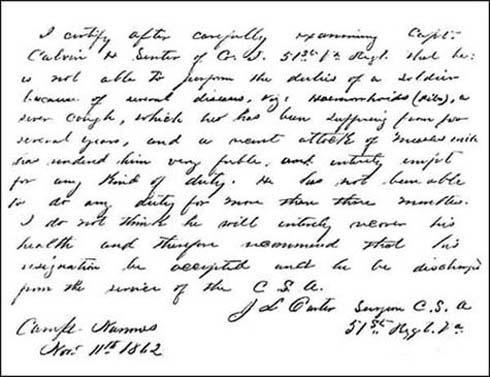 I certify after carefully examining Capt.
Calvin H Senter of Co. I. 51st Va Regt. that he
is not able to perform the duties of a soldier
because of several diseases, viz: Haemorrhoids (Piles), a
sever cough, which he has been suffering from for
several years, and a recent attack of measles
has rendered him very feble, and entirely unfit
for any kind of duty. He has not been able
to do any duty for more than three months.
I do not think he will entirely recover his
health and therefore recommend that his
resignation be accepted and he be discharged
from the service of the C. S. A.
Surgeon C. S. A
Camp 51st Regt. Va
Nov. 11th 1862